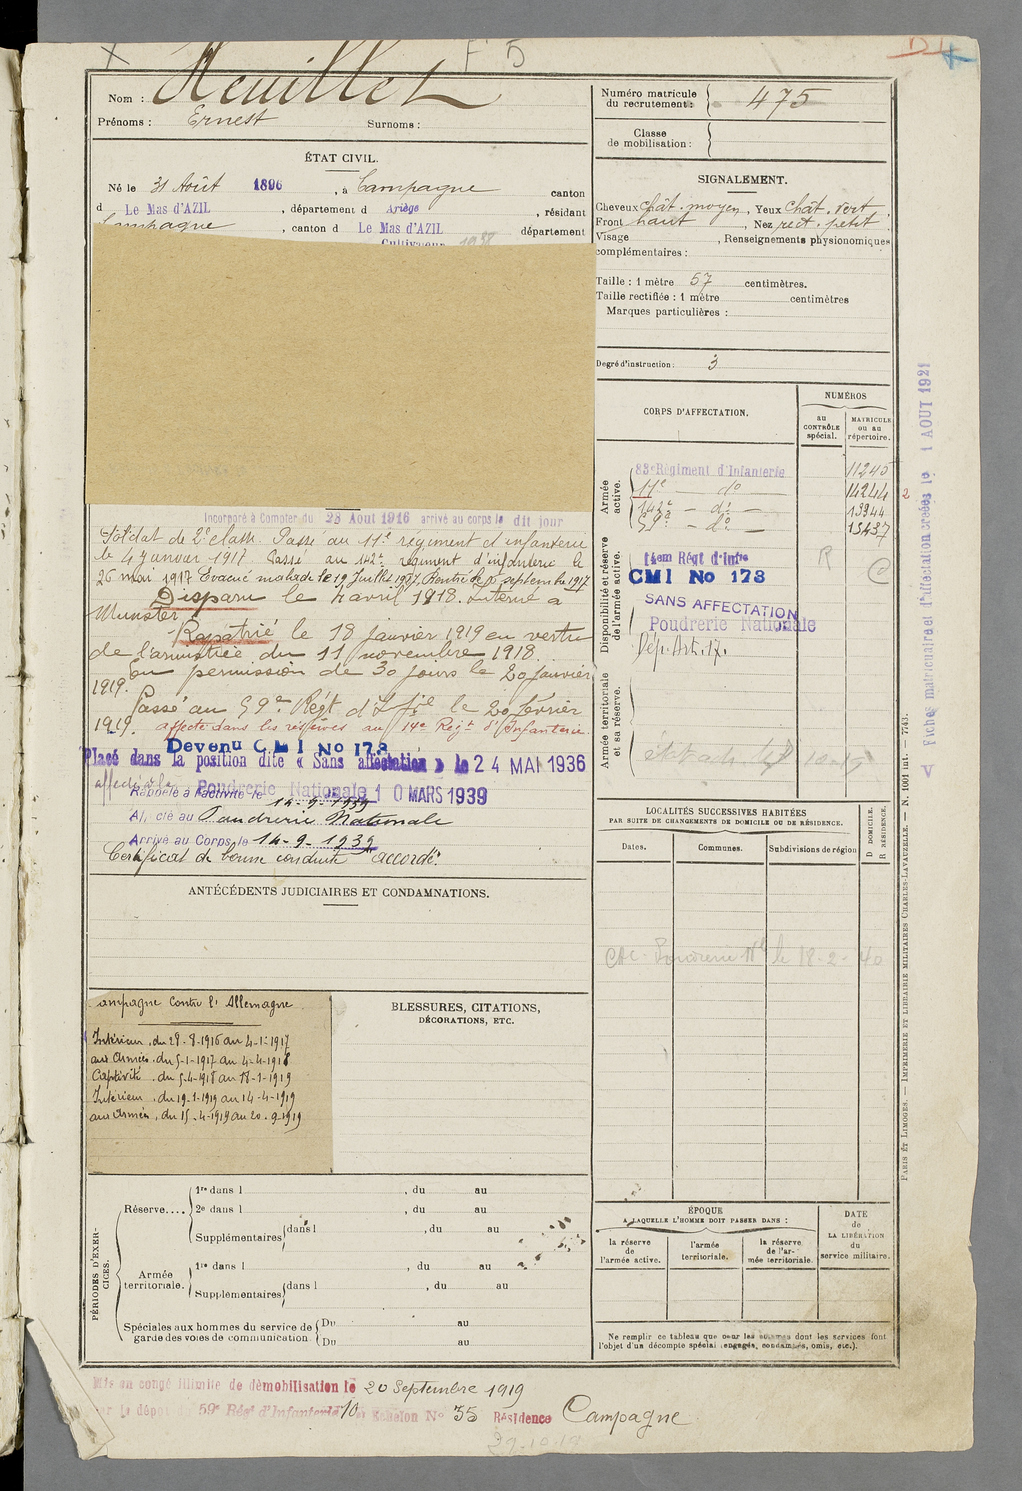 F 5
Nom : Heuillet
Prénoms : Ernest Surnoms :
ÉTAT CIVIL.
Né le 31 Août 1896, à Campagne canton
d Le Mas d'AZIL, département d Ariège, résidant
Campagne, canton d Le Mas d'AZIL département
Cultivateur 1938
Incorporé à Compter du 28 Aout 1916 arrivé au corps le dit jour
Soldat de 2e classe. Passé au 11e régiment d'infanterie
le 4 janvier 1917 Passé au 142e régiment d'infanterie le
26 mai 1917 Evacué malade le 19 Juillet 1917, Rentré le septembre 1917
Disparu le 4 avril 1918. Interné a
Munster
Rapatrié le 18 janvier 1919 en vertu
de l'armistice du 11 novembre 1918.
En permission de 30 jours le 20 janvier
1919.
Passé au 59e Régt d'Ife le 20 février
1919. affecté dans les réserves au 14e Régt d'Infanterie.
Devenu CMI No 173
Placé dans la position dite « Sans affectation » le 24 MAI 1936
affecté à la Poudrerie Nationale 10 MARS 1939
Rappelé à l'activité le 14-9-1939
Affecté au Poudrerie Nationale
Arrivé au Corps le 14-9-1939
Certificat de bonne conduite accordé.
ANTÉCÉDENTS JUDICIAIRES ET CONDAMNATIONS.
ampagne Contre l' Allemagne
Intérieur, du 28-8-1916 au 4-1-1917
aux Armées, du 5-1-1917 au 4-4-1918
Captivité, du 5-4-1918 au 18-1-1919
Intérieur, du 19-1-1919 au 14-4-1919
aux Armées, du 15-4-1919 au 20-9-1919
BLESSURES, CITATIONS,
DÉCORATIONS, ETC.
PÉRIODES D'EXERCICES.
Réserve....
1re dans l , du au
2e dans l , du au
Supplémentaires dans l , du au
Armée
territoriale.
1re dans l , du au
Supplémentaires dans l , du au
Spéciales aux hommes du service de
garde des voies de communication.
Du au
Du au
Mis en congé illimité de démobilisation le 20 Septembre 1919
par le dépôt du 59e Régt d'Infanterie 10 Echelon No 35 Résidence Campagne
Numéro matricule
du recrutement : 475
Classe
de mobilisation :
SIGNALEMENT.
Cheveux chât. moyen, Yeux chât. vert
Front haut, Nez rect. petit
Visage , Renseignements physionomiques
complémentaires :
Taille : 1 mètre 57 centimètres.
Taille rectifiée : 1 mètre centimètres
Marques particulières :
Degré d'instruction : 3
CORPS D'AFFECTATION.
NUMÉROS
au
CONTRÔLE
spécial.
MATRICULE
ou au
répertoire.
Armée
active.
83e Régiment d'Infanterie 11240
11e — do — 14244
142e — do — 13944
59e — do — 15437
2
Disponibilité et réserve
de l'armée active.
14em Régt d'Infie R
CMI No 173
SANS AFFECTATION
Poudrerie Nationale
Dép. Art. 17.
Armée territoriale
et sa réserve.
LOCALITÉS SUCCESSIVES HABITÉES
PAR SUITE DE CHANGEMENTS DE DOMICILE OU DE RÉSIDENCE.
Dates. Communes. Subdivisions de région
D DOMICILE.
R RÉSIDENCE.
Poudrerie Nle le 18-2-40
ÉPOQUE
A LAQUELLE L'HOMME DOIT PASSER DANS :
la réserve
de
l'armée active.
l'armée
territoriale.
la réserve
de l'ar-
mée territoriale.
DATE
de
LA LIBÉRATION
du
service militaire.
Ne remplir ce tableau que pour les hommes dont les services font
l'objet d'un décompte spécial (engagés, condamnés, omis, etc.).
PARIS ET LIMOGES. — IMPRIMERIE ET LIBRAIRIE MILITAIRES CHARLES-LAVAUZELLE. — N. 1001 int. — 7743.
Fiches matriculaire et d'affectation créées le 1 AOUT 1921